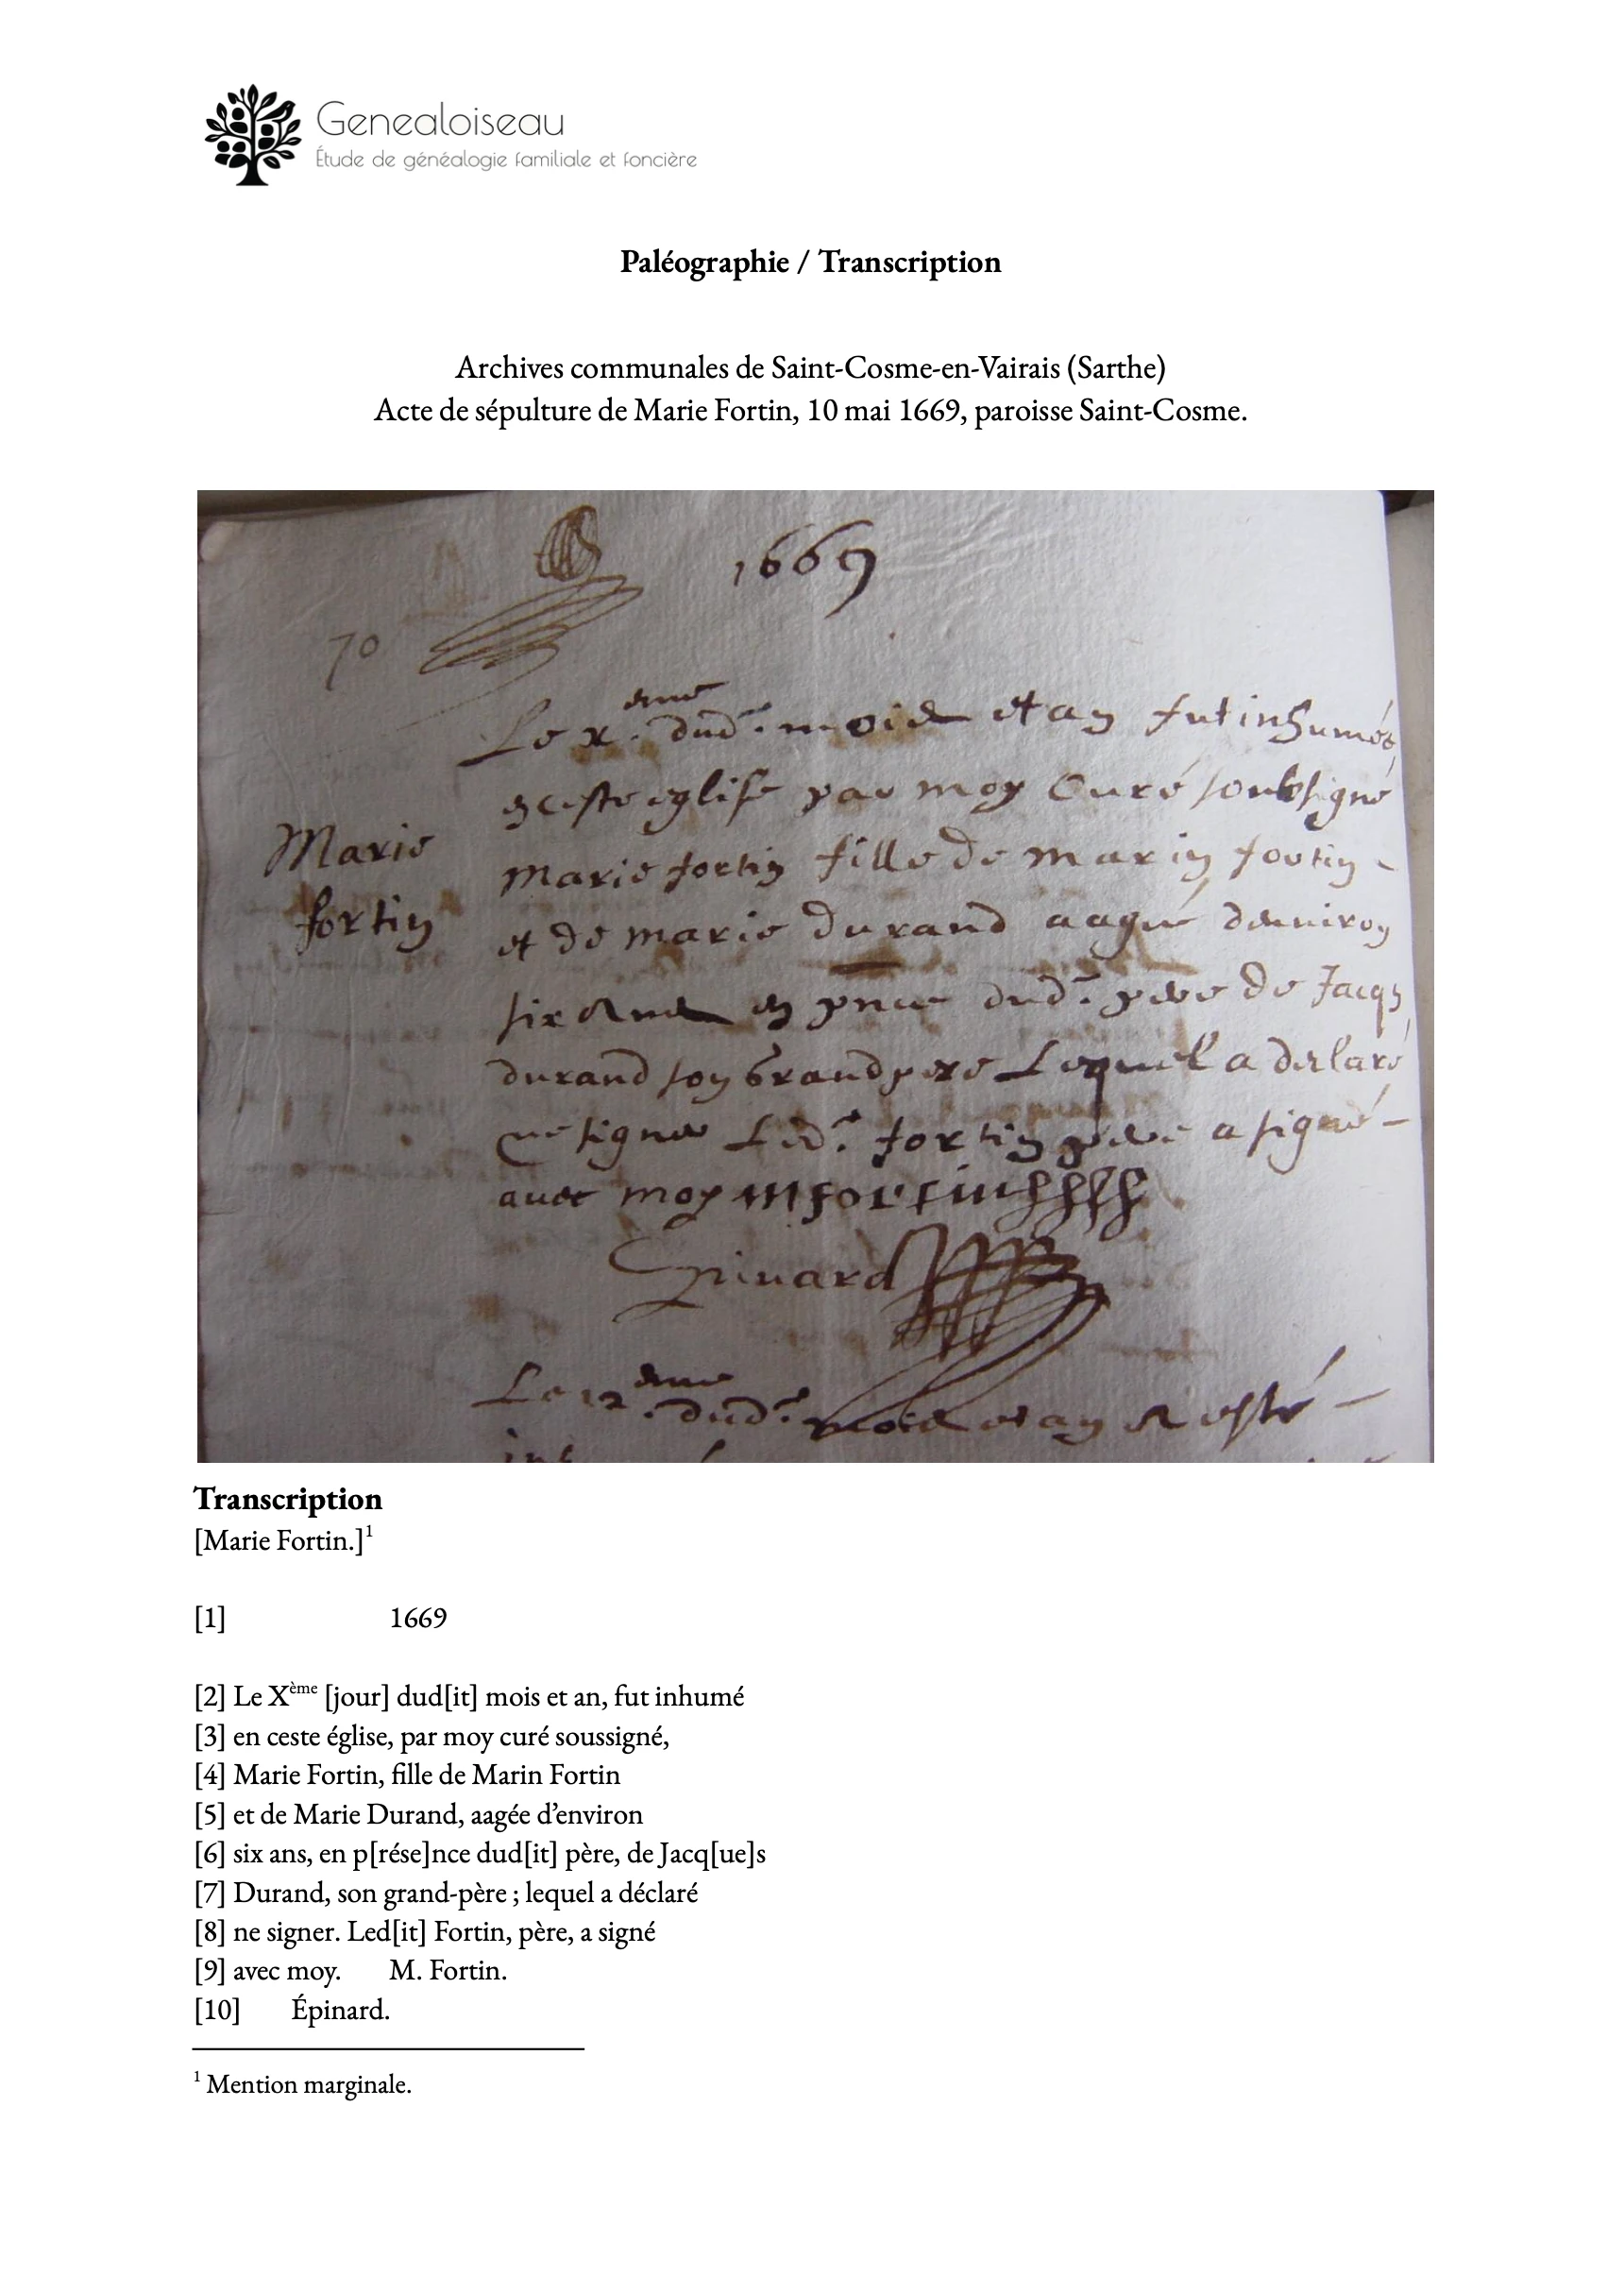 Genealoiseau
Étude de généalogie familiale et foncière
Paléographie / Transcription
Archives communales de Saint-Cosme-en-Vairais (Sarthe)
Acte de sépulture de Marie Fortin, 10 mai 1669, paroisse Saint-Cosme.
1669
70
Le x.eme dud. mois et an fut inhumée
en ceste eglise par moy Curé soubsigné
Marie fortin
marie fortin fille de marin fortin
et de marie durand aagée denviron
six ans en pnce dud. pere de Jacqs
durand son Grand pere Lequel a declaré
ne signer Led. fortin pere a signé
avec moy M fortin
Epinard
Le 12.eme dud. mois et an a esté
Transcription
[Marie Fortin.]1
[1] 1669
[2] Le Xème [jour] dud[it] mois et an, fut inhumé
[3] en ceste église, par moy curé soussigné,
[4] Marie Fortin, fille de Marin Fortin
[5] et de Marie Durand, aagée d’environ
[6] six ans, en p[rése]nce dud[it] père, de Jacq[ue]s
[7] Durand, son grand-père ; lequel a déclaré
[8] ne signer. Led[it] Fortin, père, a signé
[9] avec moy. M. Fortin.
[10] Épinard.
1 Mention marginale.